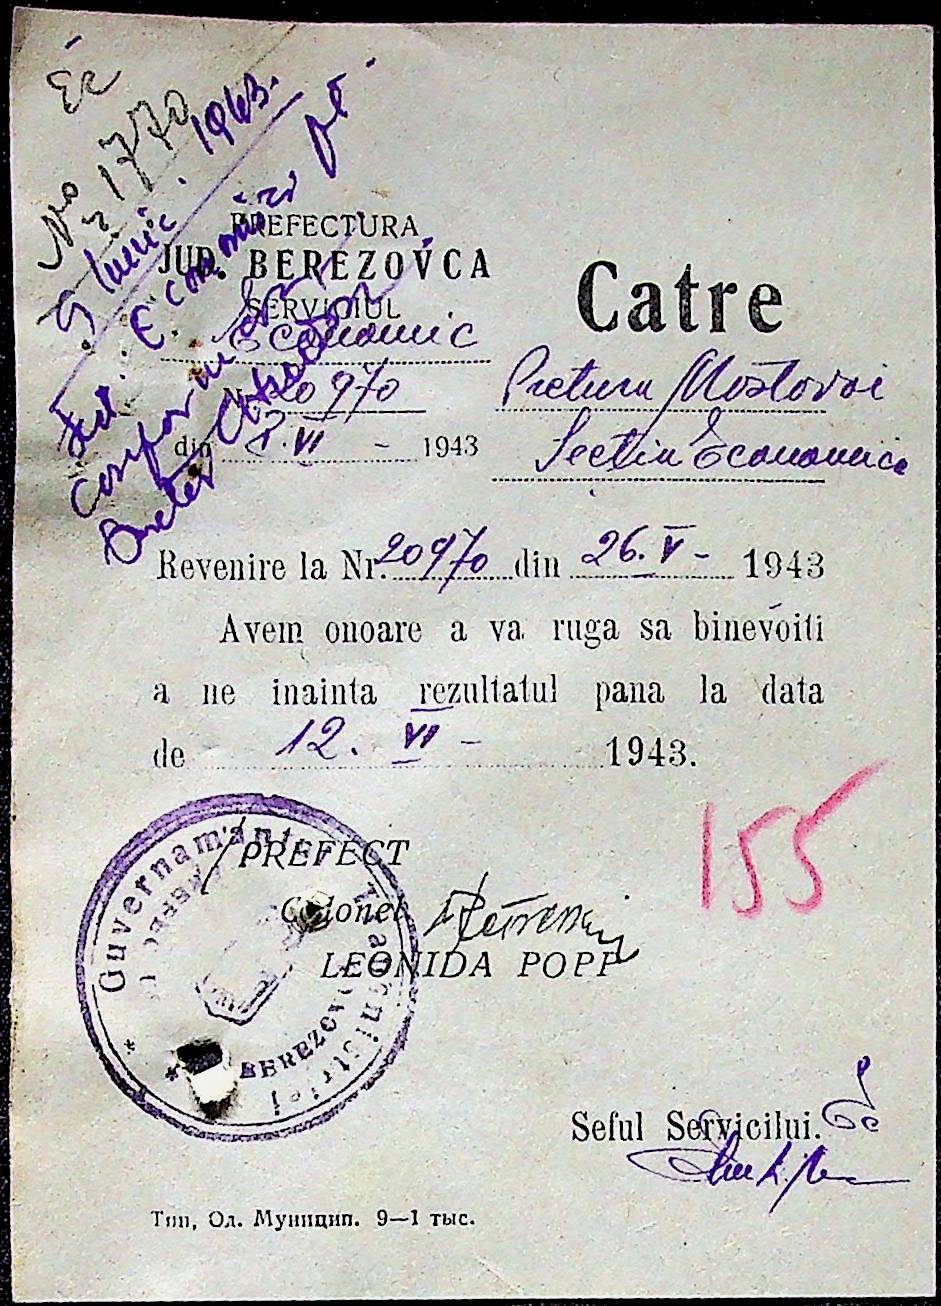 Ec
No 1770
9 Iunie. 1943.
PREFECTURA
JUD. BEREZOVCA
SERVICIUL
Economic
20970
din 8. VI - 1943
Catre
Pretura Mostovoi
Sectia Economica
Revenire la Nr. 20970 din 26. V - 1943
Avem onoare a va ruga sa binevoiti
a ne inainta rezultatul pana la data
de 12. VI - 1943.
155
PREFECT
Colonel
LEONIDA POPP
Guvernamantul Transnistriei
BEREZOVCA
Seful Servicilui. Ec
Тип, Од. Муницип. 9—1 тыс.